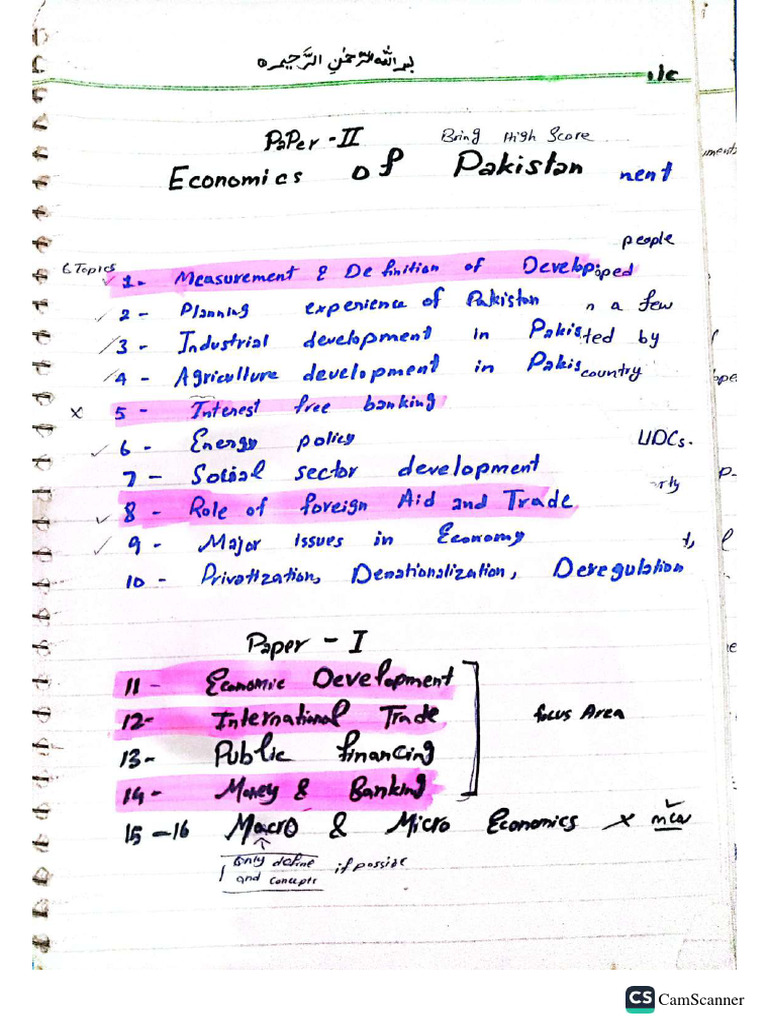 بسم الله الرحمن الرحيم
Paper - II Bring High Score
Economics of Pakistan nent
people
6 Topics
✓ 1- Measurement & Definition of Develop oped
✓ 2 - Planning experience of Pakistan n a few
✓ 3 - Industrial development in Pakis ted by
✓ 4 - Agriculture development in Pakis country
x 5 - Interest free banking
✓ 6 - Energy policy UDCs.
7 - Social sector development
rty
✓ 8 - Role of foreign Aid and Trade
✓ 9 - Major issues in Economy t,
10 - Privatization, Denationalization, Deregulation
Paper - I
11 - Economic Development
12- International Trade focus Area
13- Public financing
14 - Money & Banking
15 -16 Macro & Micro Economics x
only define if possible
and concepts
CS CamScanner